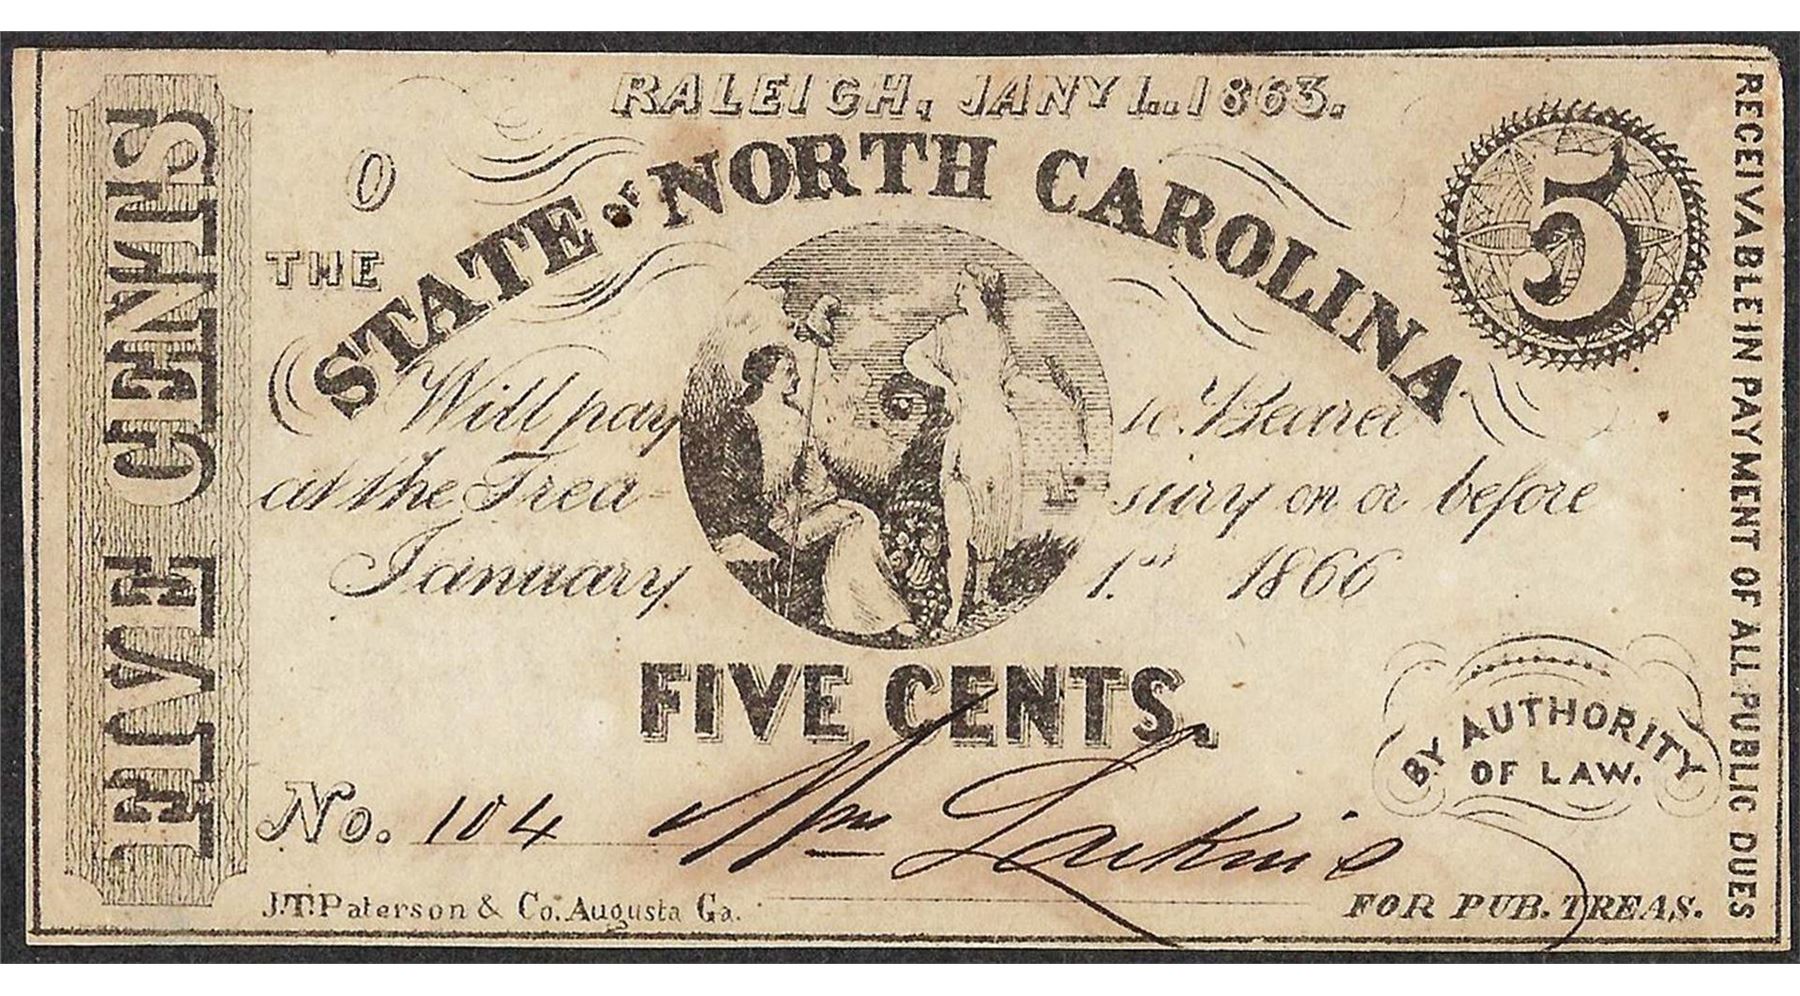 RALEIGH, JANY 1..1863.
0
5
THE
STATE OF NORTH CAROLINA
Will pay to Bearer
at the Trea- sury on or before
January 1.st 1866
FIVE CENTS.
BY AUTHORITY
OF LAW.
No. 104 Wm Larkins
J.T. Paterson & Co. Augusta Ga.
FOR PUB. TREAS.
FIVE CENTS
RECEIVABLE IN PAYMENT OF ALL PUBLIC DUES